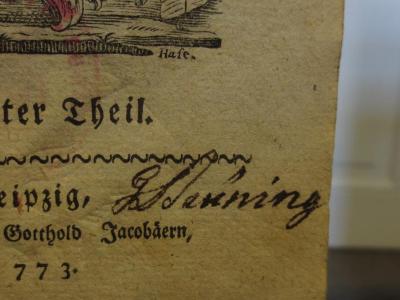 Hase.
ter Theil.
eipzig,
Gotthold Jacobäern,
773.